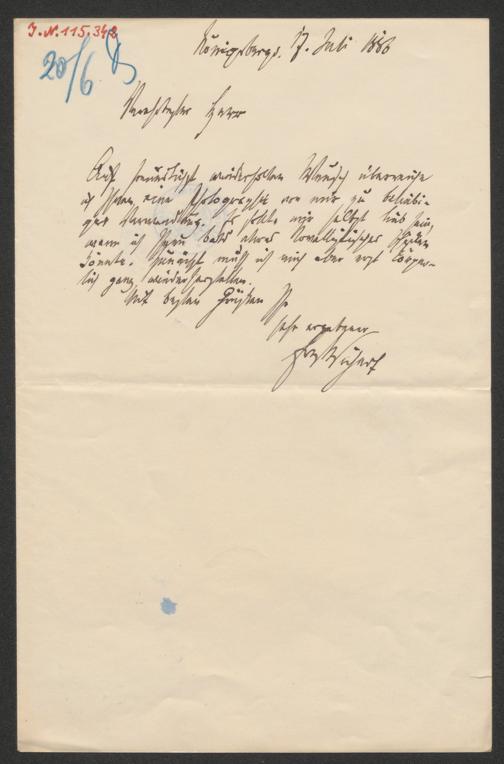 J.N. 115.348
20/6
Königsberg, 17. Juli 1886
Verehrtester Herr
Auf freundlichst wiederholten Wunsch überreiche
ich Ihnen eine Photographie von mir zu beliebi-
ger Verwendung. Es sollte mir selbst lieb sein,
wenn ich Ihnen bald etwas Novellistisches schicken
könnte. Zunächst muß ich mich aber erst körper-
lich ganz wiederherstellen.
Mit besten Grüßen Ihr
sehr ergebener
Ernst Wichert